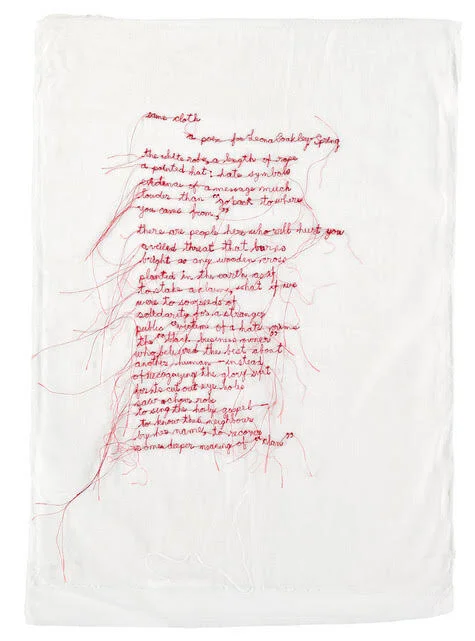 same cloth
a poem for Leona Coakley Spring
the white robe, a length of rope
a pointed hat: hate symbols
evidence of a message much
louder than "go back to where
you came from,"
there are people here who will hurt you
a veiled threat that burns
bright as any wooden cross
planted in the earth as if
to stake a claim, what if we
were to sow seeds of
solidarity for a stranger
public "victim of a hate crime"
the "black business owner"
who believed the best about
another human — instead
of recognizing the glory suit
for its cut out eye holes
saw a choir robe
to sing the holy gospel —
to know this neighbour
by his name, to recover
some deeper meaning of "clan"